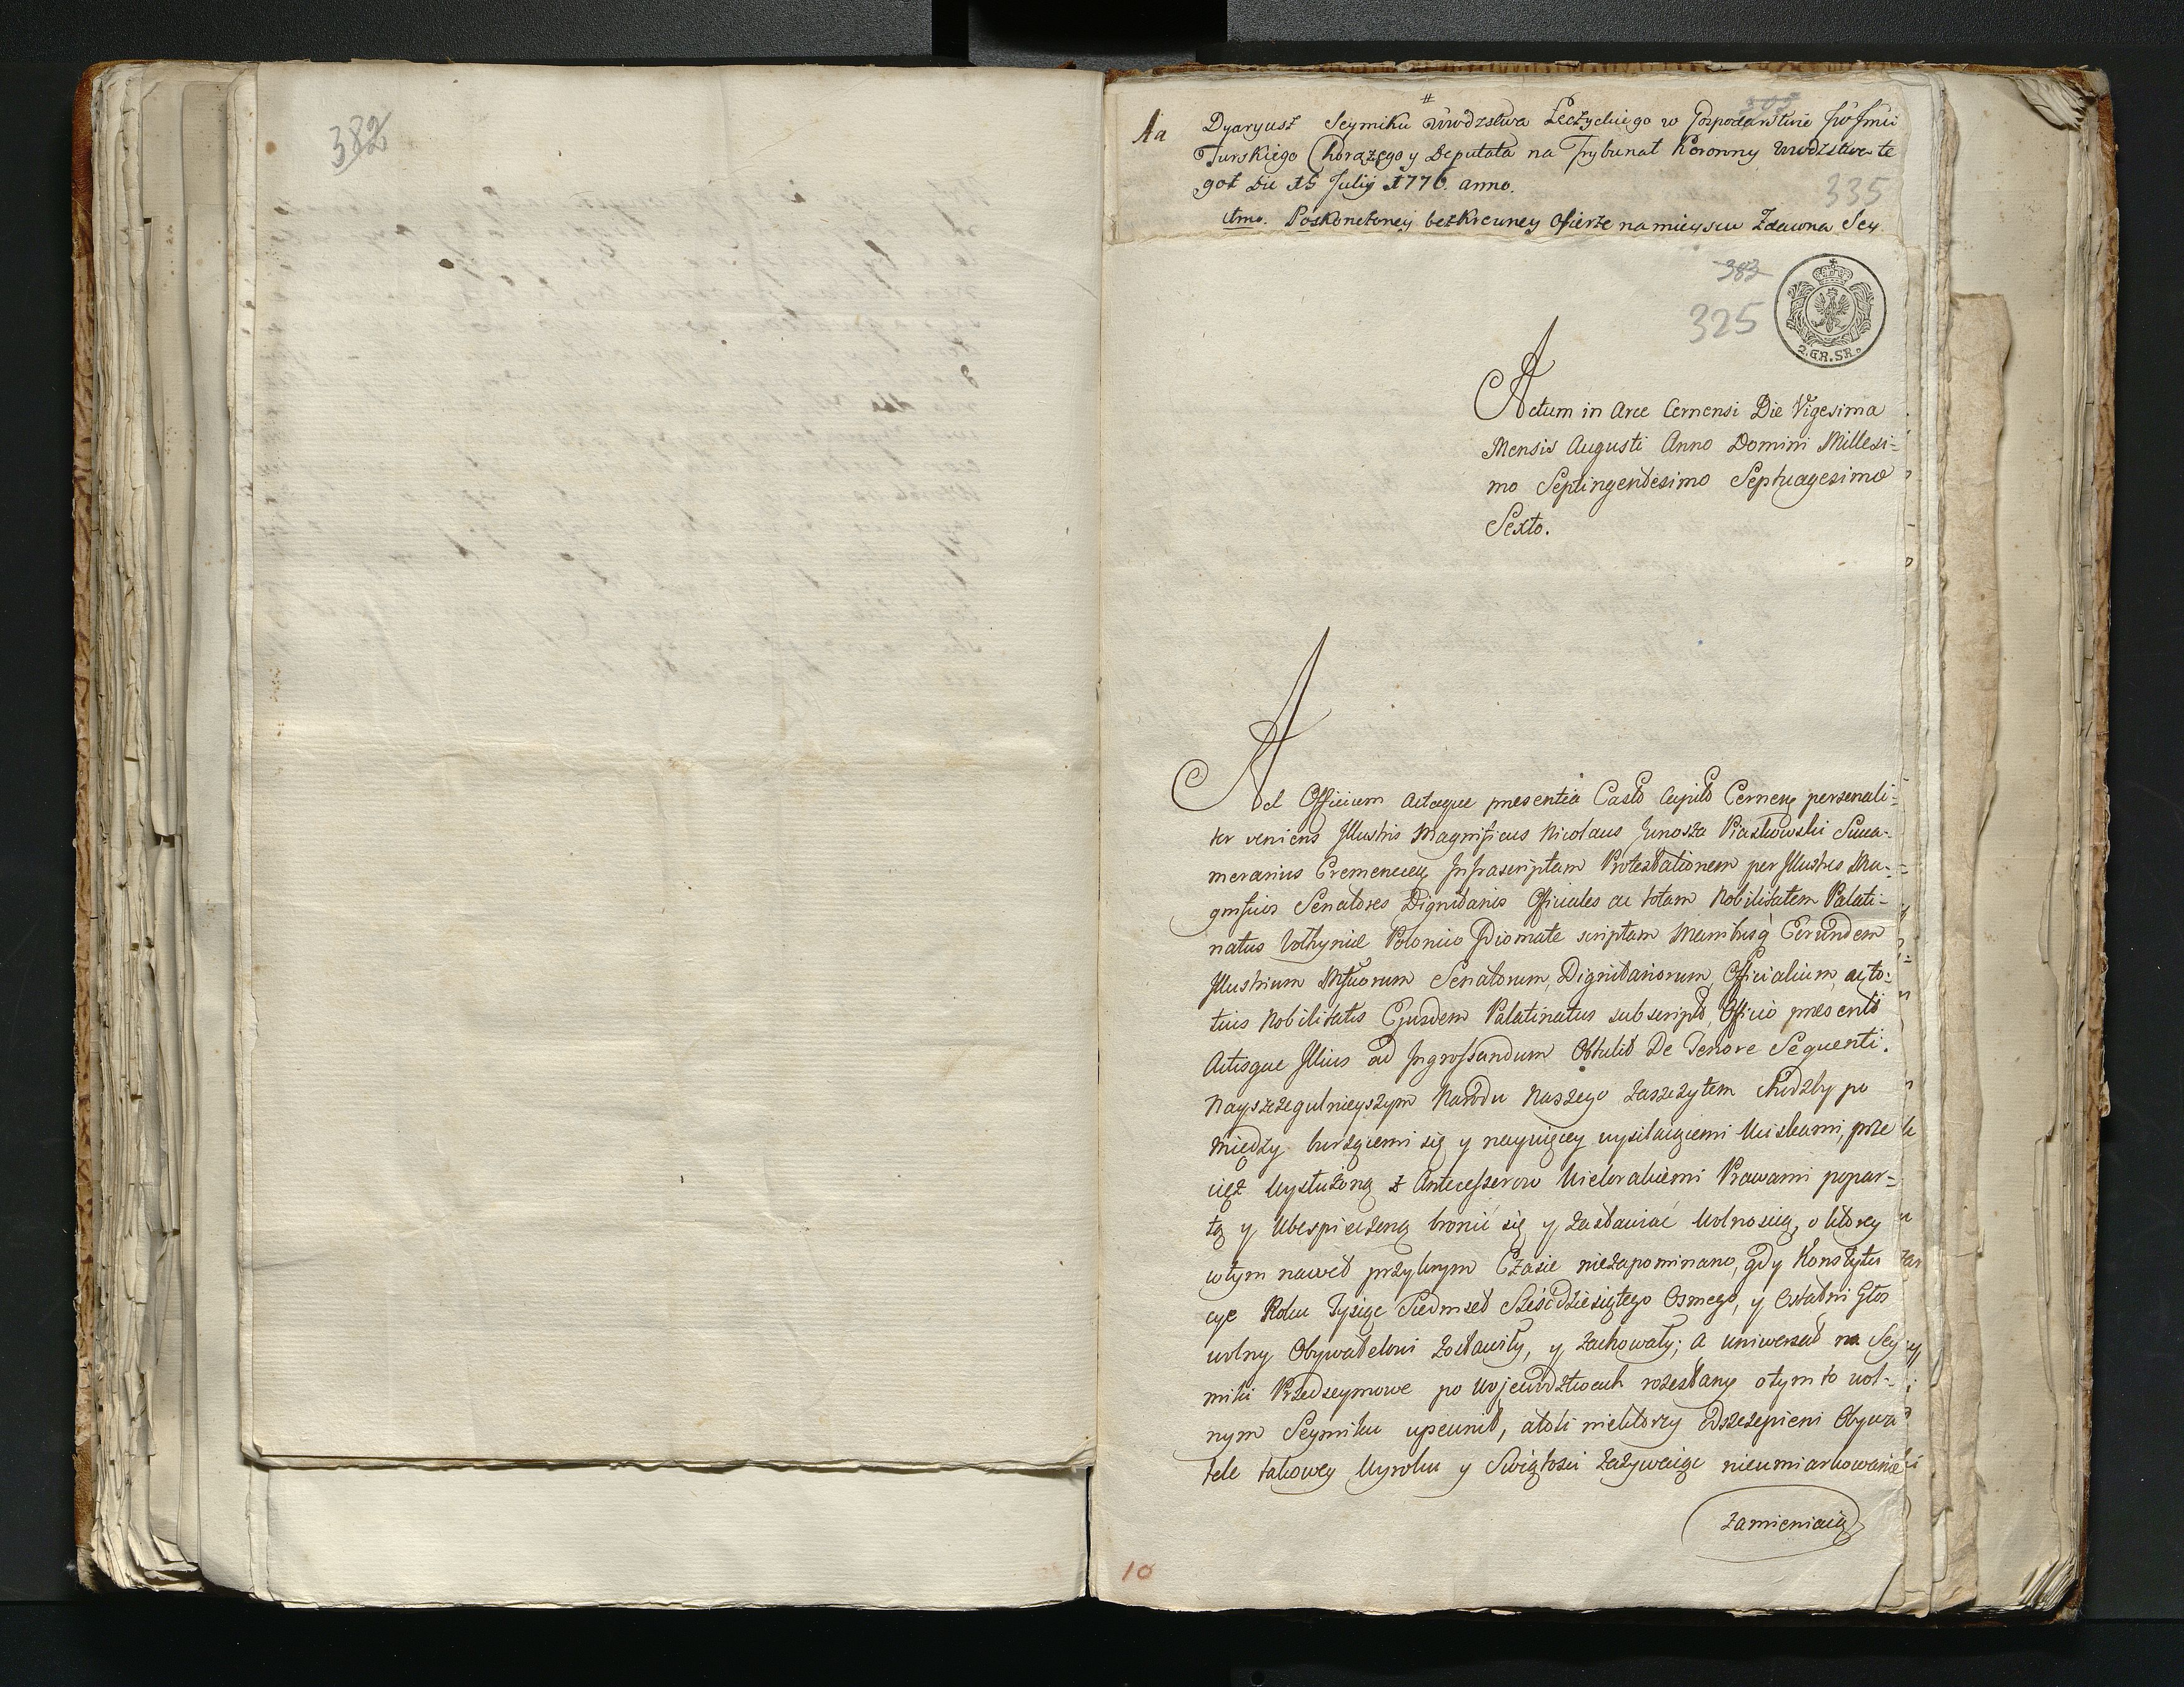 382
Aa
Dyaryusz Seymiku Wwodzstwa Łęczyckiego w Gospodarstwie
Turskiego Chorążego y Deputata na Trybunał Koronny Wwodztwa te
goż Die 15 Julij 1776. anno.
335
1mo. Poskończoney bezkrewney Ofierze na mieyscu Zdawna Sey
383
325
2.GR.SR.
Actum in Arce Cernensi Die Vigesima
Mensis Augusti Anno Domini Millesi-
mo Septingentesimo Septuagesimo
Sexto.
Ad Officium Actaque presentia Castr Capitl Cernens personali-
ter veniens Illustris Magnificus Nicolaus Junosza Piaskowski Succa-
merarius Cremenecens Infrascriptam Protestationem per Illustres Ma-
gnificos Senatores Dignitarios Officiales ac totam Nobilitatem Palati-
natus Volhyniæ Polonico Idiomate scriptam Manibusq Eorundem
Illustrium Mfficorum Senatorum, Dignitariorum, Officialium, ac to-
tius Nobilitatis Ejusdem Palatinatus subscript, Officio presenti
Actisque Illius ad Ingrossandum Obtulit De Tenore Sequenti.
Nayszczegulnieyszym Narodu Naszego zaszczytem
między burzącemi się y naywięcey wysilaiącemi Uciskami, prze
cięż Wysłużoną z Antecessorow Wielorakiemi Prawami popar-
tą y Ubespieczoną bronić się y zastawiać Wolnością, o ktorey
wtym nawet przykrym Czasie niezapominano, gdy Konstytu
cye Roku Tysiąc Siedmset Sześćdziesiątego Osmego, y Ostatni Głos
wolny Obywatelowi zostawiły, y zachowały; a uniwersał na Sey
miki Przedseymowe po Wojewodztwach rozesłany o tym to wol-
nym Seymiku upewnił, atoli niektorzy Odszczepieni Obywa
tele takowey Wyroku y Swiątości zażywaiąc nieumiarkowanie
zamieniaią
10